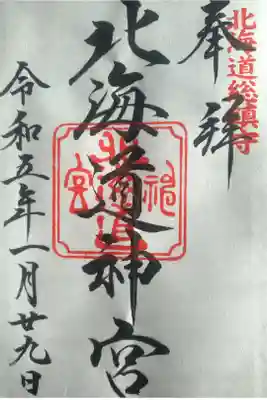 北海道総鎮守
奉拝
北海道神宮
令和五年一月廿九日